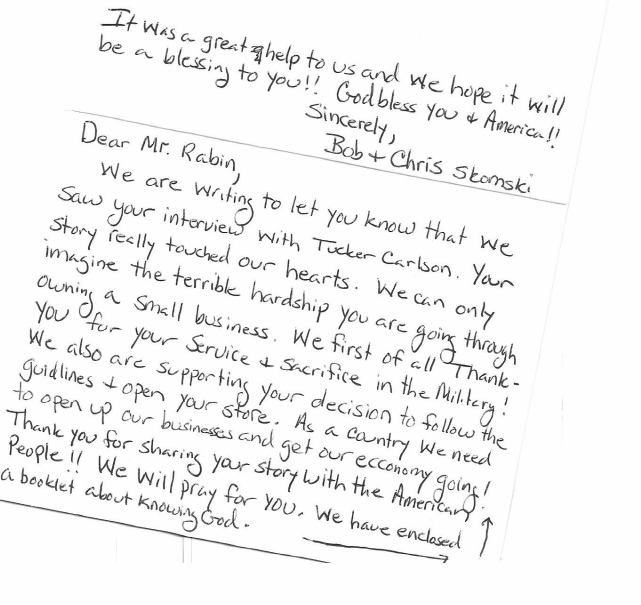 It was a great help to us and we hope it will
be a blessing to you!! God bless you + America!!
Sincerely,
Bob + Chris Skomski
Dear Mr. Rabin,
We are writing to let you know that we
saw your interview with Tucker Carlson. Your
story really touched our hearts. We can only
imagine the terrible hardship you are going through
owning a small business. We first of all Thank-
you for your Service + Sacrifice in the Military!
We also are supporting your decision to follow the
guidlines + open your store. As a country we need
to open up our businesses and get our ecconomy going!
Thank you for sharing your story with the American
People!! We will pray for you. We have enclosed
a booklet about knowing God.